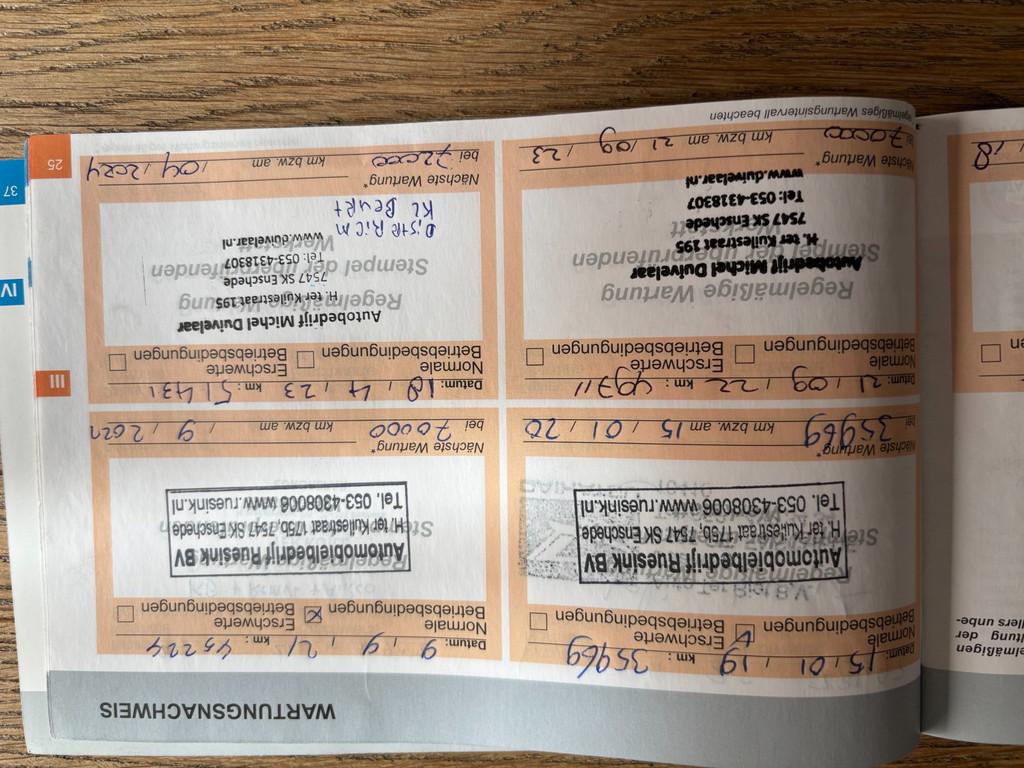 elmäßigen
tung der
llers unbe-
18
WARTUNGSNACHWEIS
Datum: 15 / 01 / 19 km: 35969
Normale Betriebsbedingungen
Erschwerte Betriebsbedingungen
Regelmäßige
Automobielbedrijf Ruesink BV
H. ter Kuilestraat 175b, 7547 SK Enschede
Tel. 053-4308006 www.ruesink.nl
Nächste Wartung*
bei 35969 km bzw. am 15 / 01 / 20
Datum: 9 / 9 / 21 km: 45224
Normale Betriebsbedingungen
Erschwerte Betriebsbedingungen
Automobielbedrijf Ruesink BV
H. ter Kuilestraat 175b, 7547 SK Enschede
Tel. 053-4308006 www.ruesink.nl
Nächste Wartung*
bei 70000 km bzw. am / 9 / 2022
Datum: 21 / 09 / 22 km: 49711
Normale Betriebsbedingungen
Erschwerte Betriebsbedingungen
Regelmäßige Wartung
Stempel der überprüfenden
Werkstatt
Autobedrijf Michel Duivelaar
H. ter Kuilestraat 195
7547 SK Enschede
Tel: 053-4318307
www.duivelaar.nl
Nächste Wartung*
bei 70000 km bzw. am 21 / 09 / 23
Datum: 18 / 4 / 23 km: 51431
Normale Betriebsbedingungen
Erschwerte Betriebsbedingungen
Regelmäßige Wartung
Stempel der überprüfenden
Werkstatt
Autobedrijf Michel Duivelaar
H. ter Kuilestraat 195
7547 SK Enschede
Tel: 053-4318307
www.duivelaar.nl
Distr Ricm
KL Beurt
Nächste Wartung*
bei 72000 km bzw. am / 04 / 2024
egelmäßiges Wartungsintervall beachten
III
25
IV
37